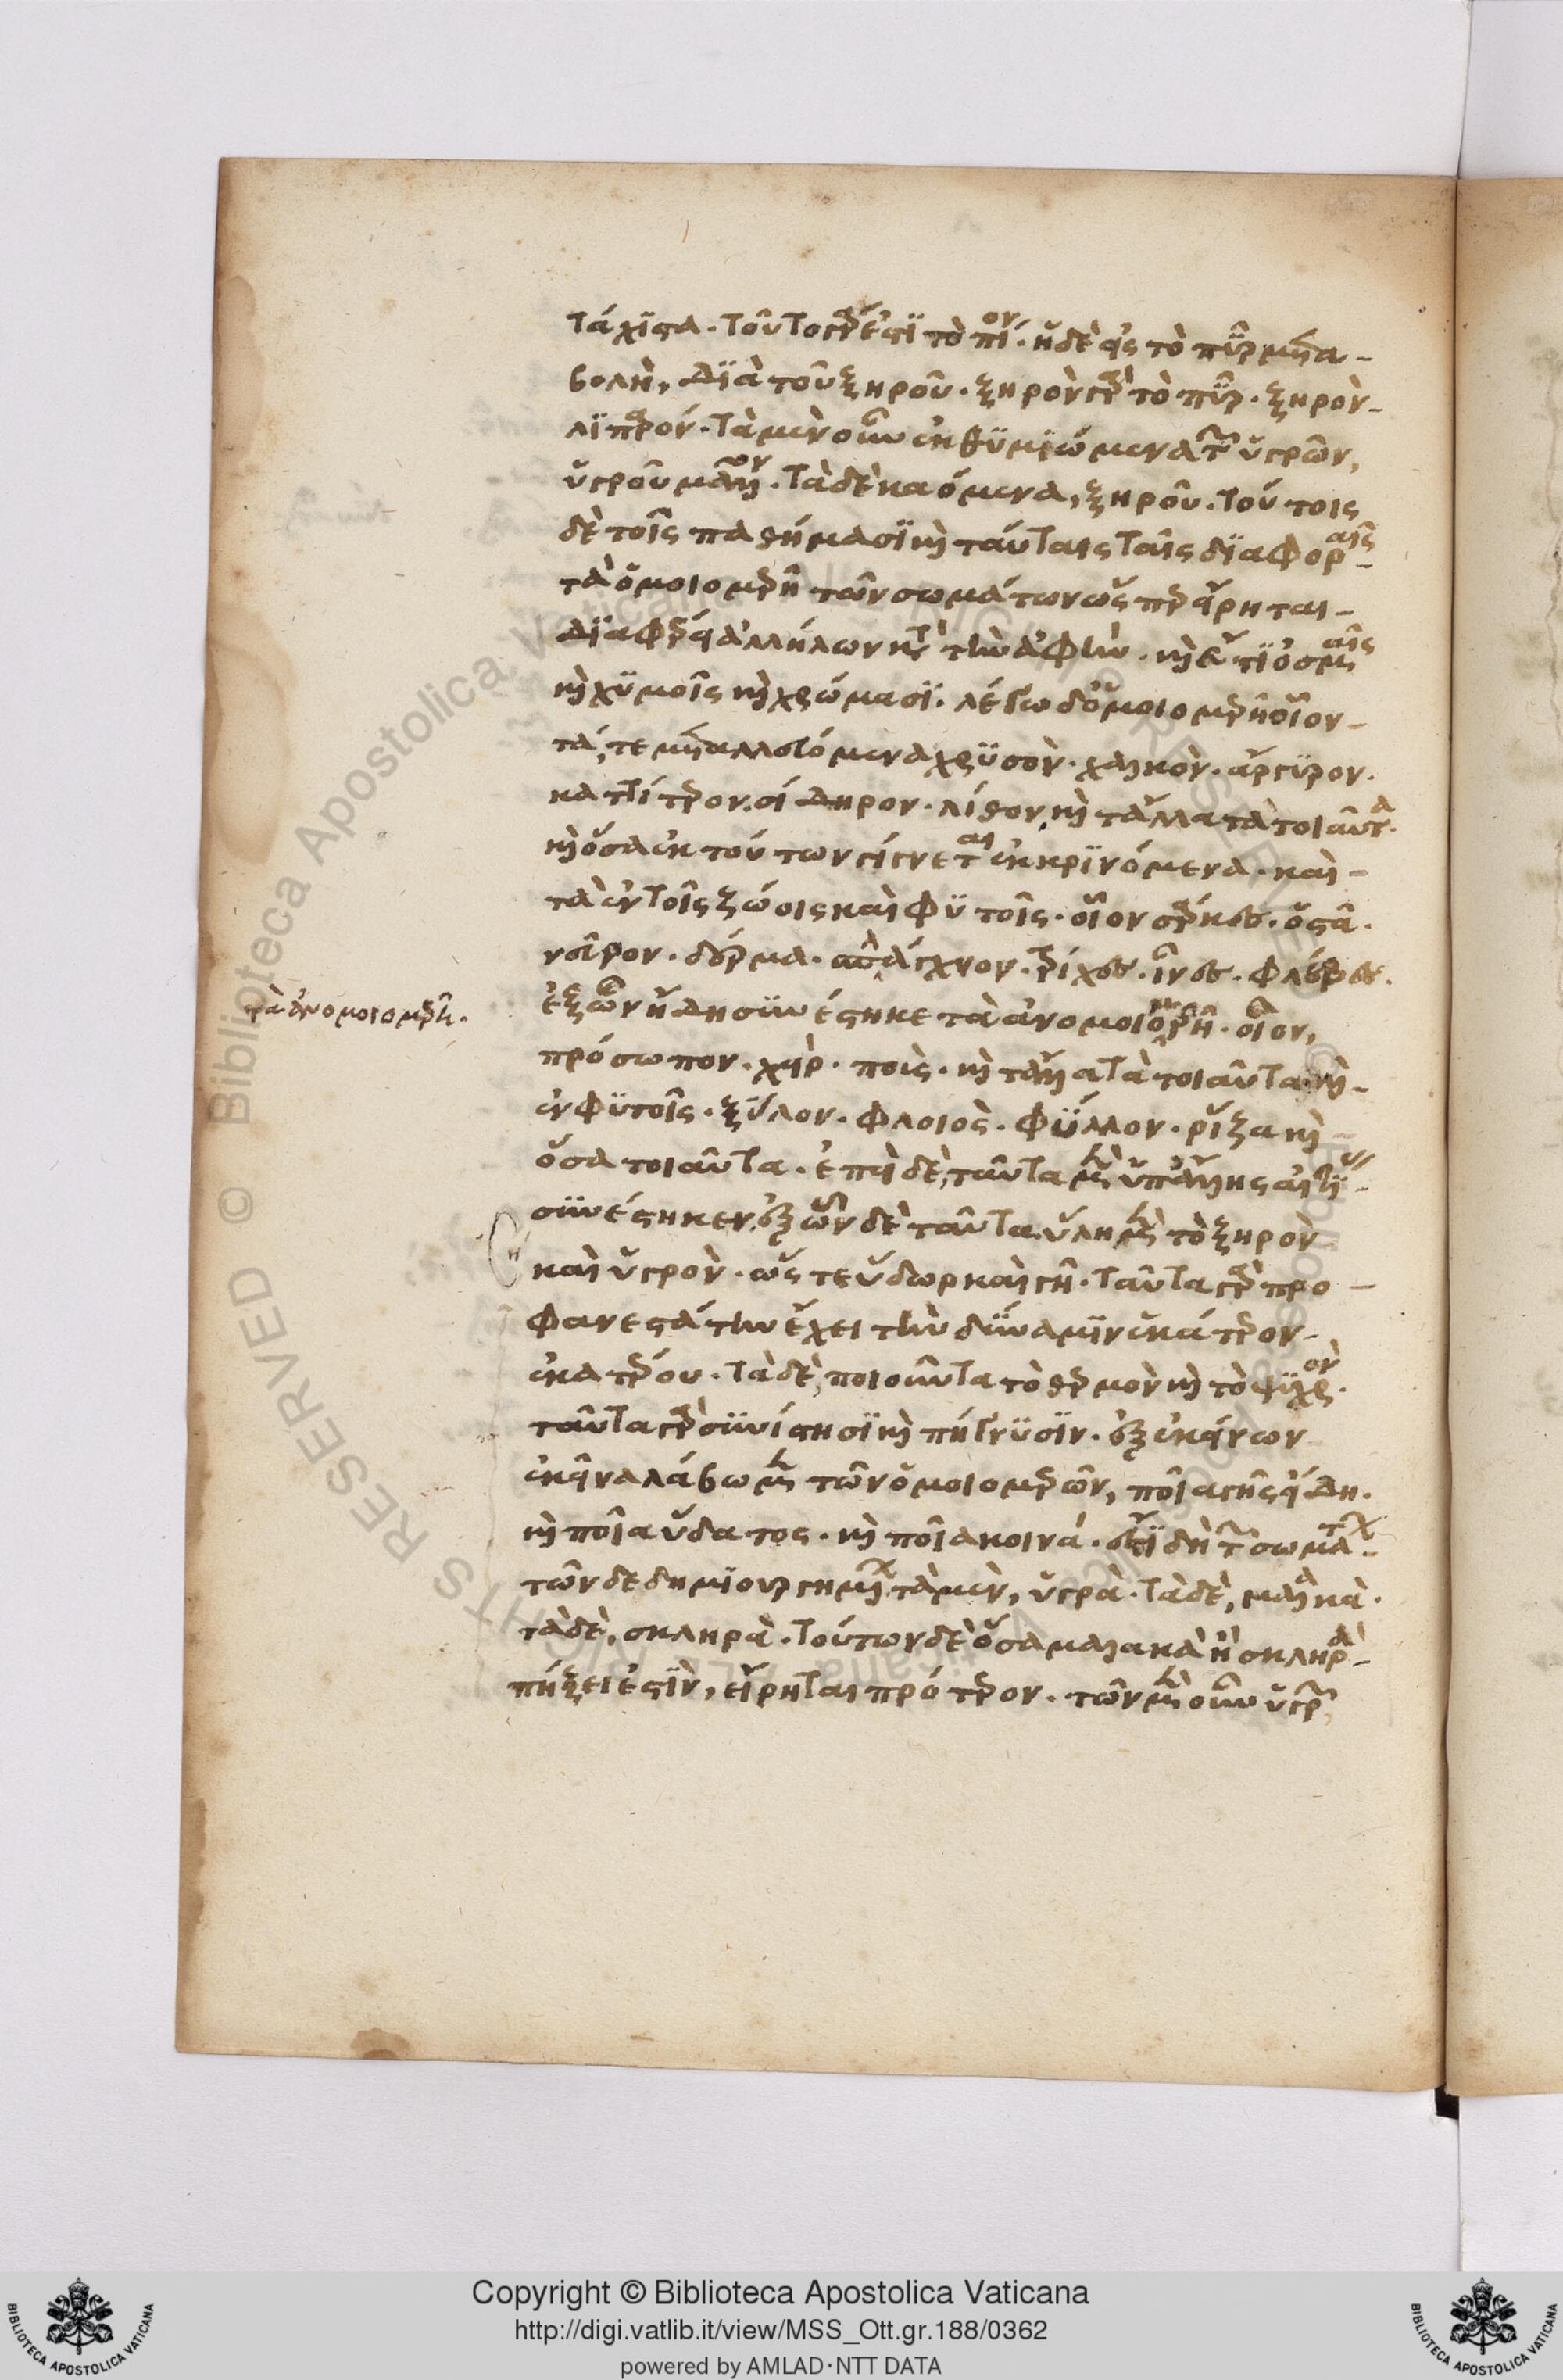 τάχιστα. τοῦτο γάρ ἐστι τὸ πῖον. ἡ δὲ εἰς τὸ πῦρ μετα-
βολὴ, διὰ τοῦ ξηροῦ. ξηρὸν γὰρ τὸ πῦρ. ξηρὸν-
λιπαρόν. τὰ μὲν οὖν ἐκθυμιώμενα τῶν ὑγρῶν,
ὑγροῦ μᾶλλον. τὰ δὲ καόμενα, ξηροῦ. τούτοις
δὲ τοῖς παθήμασι καὶ ταύταις ταῖς διαφοραῖς-
τὰ ὁμοιομερῆ τῶν σωμάτων ὥσπερ εἴρηται-
διαφέρει ἀλλήλων κατὰ τὴν ἁφὴν. καὶ ἔτι ὀσμαῖς
καὶ χυμοῖς καὶ χρώμασι. λέγω δ' ὁμοιομερῆ οἷον-
τά, τε μεταλλευόμενα χρυσὸν. χαλκὸν. ἄργυρον.
καττίτερον. σίδηρον. λίθον, καὶ τἄλλα τὰ τοιαῦτα.
καὶ ὅσα ἐκ τούτων γίγνεται ἐκκρινόμενα. καὶ-
τὰ ἐν τοῖς ζώοις καὶ φυτοῖς. οἷον σάρκες. ὀστᾶ.
νεῦρον. δέρμα. σπλάγχνον. τρίχες. ἶνες. φλέβες.
τὰ ἀνομοιομερῆ.
ἐξ ὧν ἤδη συνέστηκε τὰ ἀνομοιομερῆ. οἷον,
πρόσωπον. χεὶρ. ποὺς. καὶ τἄλλα τὰ τοιαῦτα καὶ-
ἐν φυτοῖς. ξύλον. φλοιὸς. φύλλον. ῥίζα καὶ-
ὅσα τοιαῦτα. ἐπεὶ δὲ, ταῦτα μὲν ὑπ' ἄλλης αἰτίας-
συνέστηκεν, ἐξ ὧν δὲ ταῦτα ὕλη μὲν τὸ ξηρὸν
καὶ ὑγρὸν. ὥστε ὕδωρ καὶ γῆ. ταῦτα γὰρ προ-
φανεστάτην ἔχει τὴν δύναμιν ἑκάτερον-
ἑκατέρου. τὰ δὲ, ποιοῦντα τὸ θερμὸν καὶ τὸ ψυχρὸν.
ταῦτα γὰρ συνίστησι καὶ πήγνυσιν. ἐξ ἐκείνων
ἐκεῖνα λάβωμεν τῶν ὁμοιομερῶν, ποῖα γῆς εἴδη.
καὶ ποῖα ὕδατος. καὶ ποῖα κοινά. ἔστι δὴ τῶν σωμάτων-
τῶν δεδημιουργημένων τὰ μὲν, ὑγρὰ. τὰ δὲ, μαλακὰ.
τὰ δὲ, σκληρὰ. τούτων δὲ ὅσα μαλακὰ ἢ σκληρὰ-
πήξει ἐστὶν, εἴρηται πρότερον. τῶν μὲν οὖν ὑγρῶν
Biblioteca Apostolica Vaticana
Copyright © Biblioteca Apostolica Vaticana
http://digi.vatlib.it/view/MSS_Ott.gr.188/0362
powered by AMLAD·NTT DATA